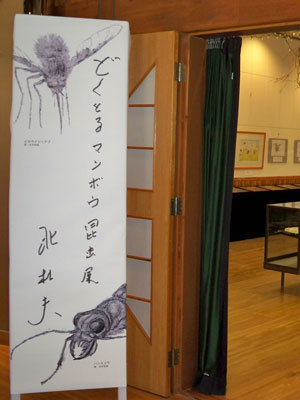 どくとるマンボウ昆虫展
北杜夫